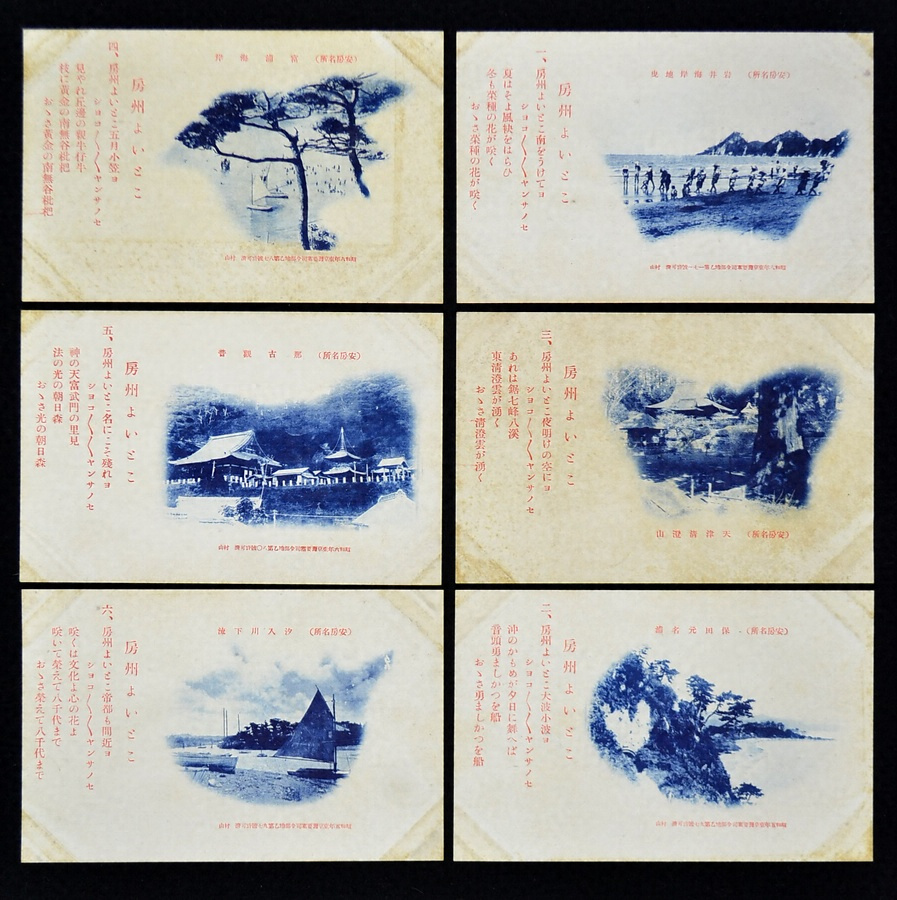 (安房名所) 富浦海岸
房州よいとこ
四、房州よいとこ五月小笠ヨ
シヨコ〳〵〳〵ヤンサノセ
見やれ丘邊の親牛仔牛
枝に黃金の南無谷枇杷
おゝさ黃金の南無谷枇杷
(安房名所) 岩井海岸地曳
房州よいとこ
一、房州よいとこ南をうけてヨ
シヨコ〳〵〳〵ヤンサノセ
夏はそよ風袂をはらひ
冬も菜種の花が咲く
おゝさ菜種の花が咲く
(安房名所) 那古觀音
房州よいとこ
五、房州よいとこ名にこそ殘れヨ
シヨコ〳〵〳〵ヤンサノセ
神の天富武門の里見
法の光の朝日森
おゝさ光の朝日森
房州よいとこ
三、房州よいとこ夜明けの空にヨ
シヨコ〳〵〳〵ヤンサノセ
あれは鋸七峰八溪
東淸澄雲が湧く
おゝさ淸澄雲が湧く
(安房名所) 天津淸澄山
(安房名所) 汐入川下流
房州よいとこ
六、房州よいとこ帝都も間近ヨ
シヨコ〳〵〳〵ヤンサノセ
咲くは文化よ心の花よ
咲いて榮えて八千代まで
おゝさ榮えて八千代まで
(安房名所) 保田元名
房州よいとこ
二、房州よいとこ大波小波ヨ
シヨコ〳〵〳〵ヤンサノセ
沖のかもめが夕日に舞へば
音頭勇ましかつを船
おゝさ勇ましかつを船